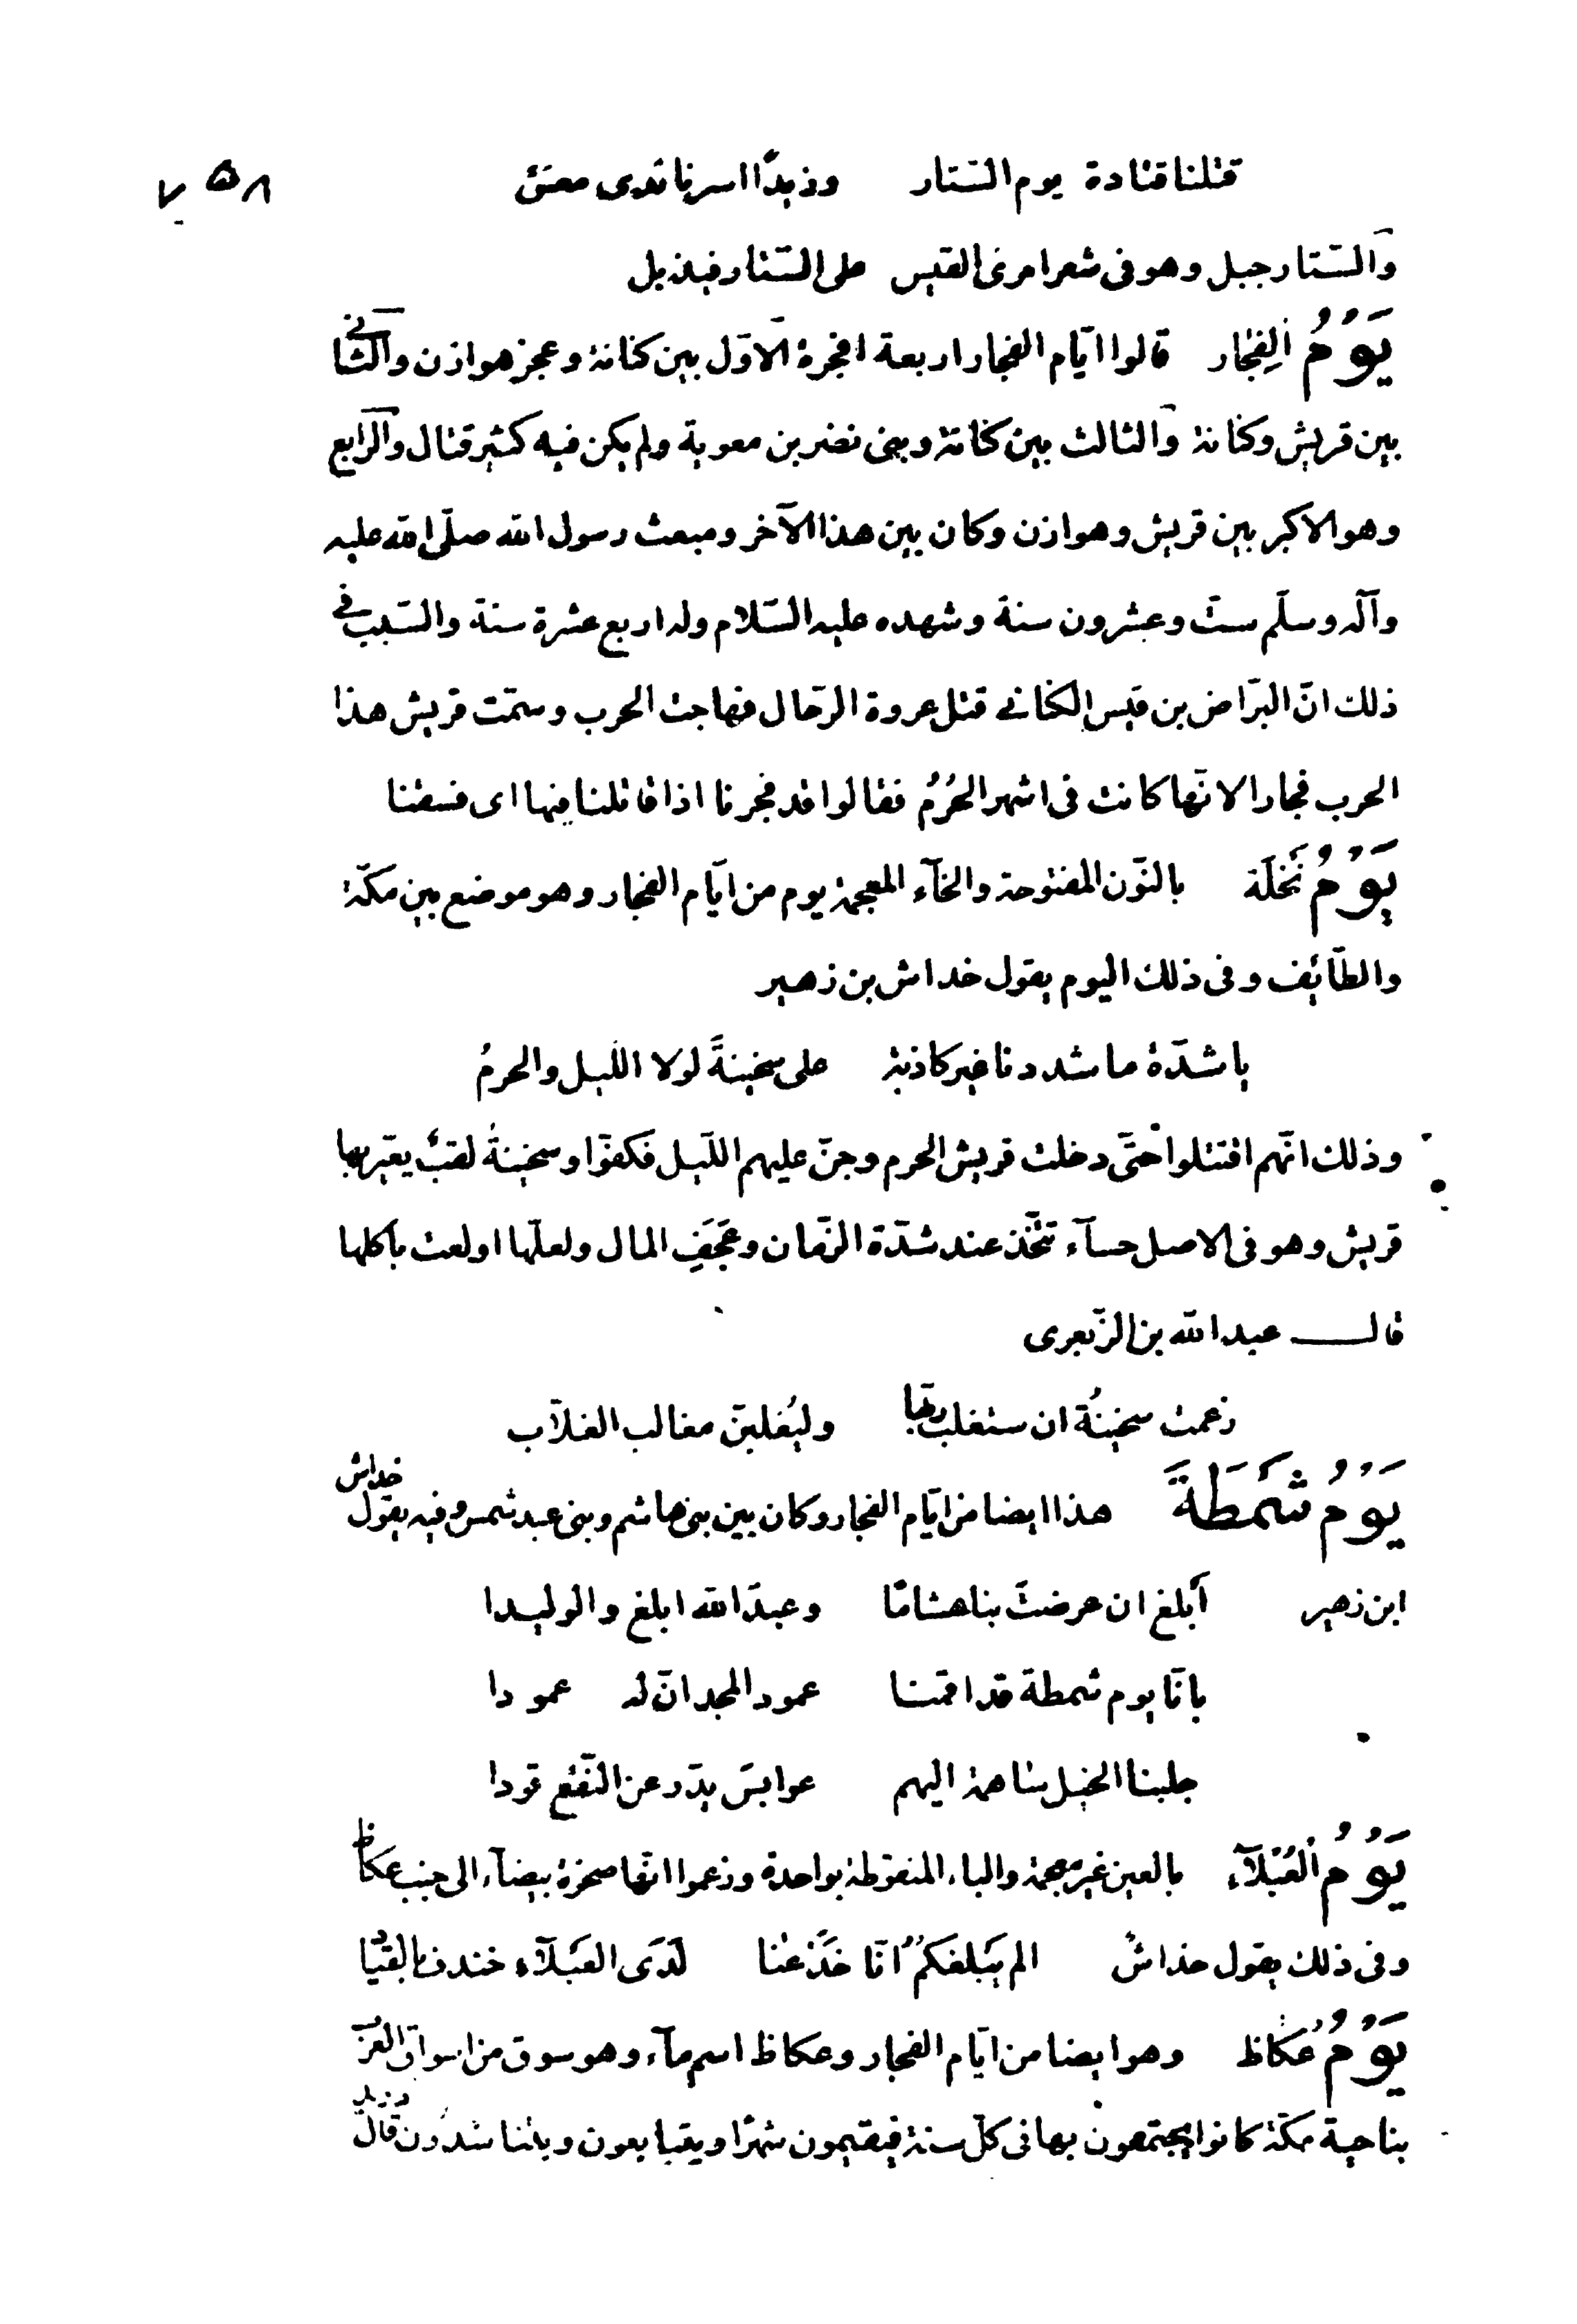 ٧٥٨
قتلنا قتادة يوم الستار وزيدًا اسرنا لدى معنق
والستار جبل وهو فى شعر امرئ القيس على الستار فيذبل
يَوْمُ الفِجَار قالوا ايّام الفجار اربعة افجرة الاوّل بين كنانة وعجز هوازن والثّانى
بين قريش وكنانة والثالث بين كنانة وبنى نضر بن معوية ولم يكن فيه كثير قتال والرّابع
وهو الاكبر بين قريش وهوازن وكان بين هذا الآخر ومبعث رسول الله صلّى الله عليه
وآله وسلّم ستّ وعشرون سنة وشهده عليه السّلام وله اربع عشرة سنة والسّبب فى
ذلك انّ البرّاض بن قيس الكنانى قتل عروة الرحّال فهاجت الحرب وسمّت قريش هذا
الحرب فجارا لانّها كانت فى اشهر الحُرُم فقالوا قد فجرنا اذا قاتلنا فيها اى فسقنا
يَوْمُ نَخْلَة بالنّون المفتوحة والخآء المعجمة يوم من ايّام الفجار وهو موضع بين مكّة
والطّائف وفى ذلك اليوم يقول خداش بن زهير
يا شدّة ما شددنا غير كاذبة على سخينةَ لولا اللّيل والحرمُ
وذلك انّهم اقتتلوا حتّى دخلت قريش الحرم وجنّ عليهم اللّيل فكفّوا وسخينةُ لقبٌ يعيّر بها
قريش وهو فى الاصل حسآء تتّخذ عند شدّة الزّمان وعَجَفِ المال ولعلّها اولعت باكلها
قال عبد الله بن الزّبعرى
زعمت سخينةُ ان ستغلب ربّها وليُغلبنّ مغالب الغلّاب
يَوْمُ شَمْطَةَ هذا ايضا من ايّام الفجار وكان بين بنى هاشم وبنى عبد شمس وفيه يقول خداش
ابن زهير أبلغ ان عرضتَ بنا هشامًا وعبدَ الله ابلغ والوليدا
بانّا يوم شمطة قد اقمنا عمود المجد انّ له عمودا
جلبنا الخيل ساهمة اليهم عوابسَ يدّرعن النّقع قودا
يَوْمُ العُبْلَآء بالعين غير معجمة والباء المنقوطة بواحدة وزعموا انّها صخرة بيضآء الى جنب عكاظ
وفى ذلك يقول خداش الم يَبلغكمُ انّا جَذَعْنا لَدَى العَبْلَآء خندف بالقيادا
يَوْمُ عُكَاظ وهو ايضا من ايّام الفجار وعكاظ اسم مآء وهو سوق من اسواق العرب
بناحية مكّة كانوا يجتمعون بها فى كلّ سنة فيقيمون شهرًا ويتبايعون ويتناشدون قال